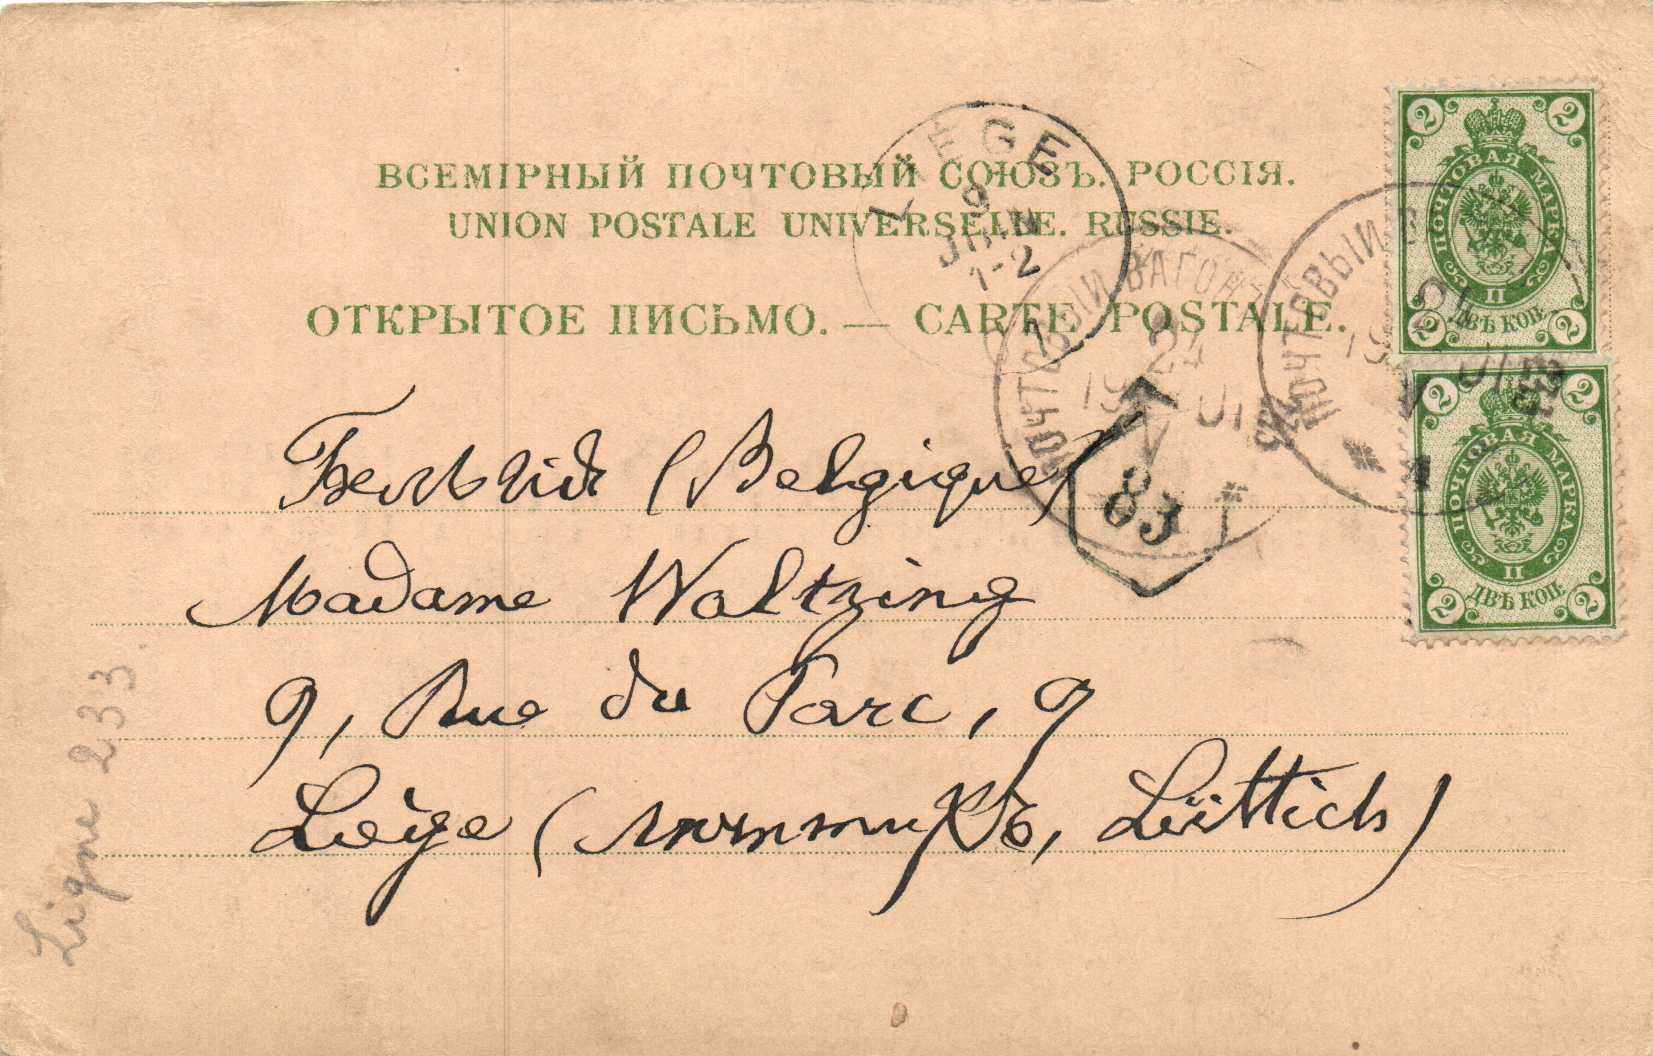 ВСЕМІРНЫЙ ПОЧТОВЫЙ СОЮЗЪ. РОССІЯ.
UNION POSTALE UNIVERSELLE. RUSSIE.
ОТКРЫТОЕ ПИСЬМО. — CARTE POSTALE.
LIÈGE
9
JUIN
1-2
ПОЧТОВЫЙ ВАГОНЪ
24
V
83
ПОЧТОВЫЙ В
2 2
ПОЧТОВАЯ МАРКА
II
ДВѢ КОП.
2 2
2 2
ПОЧТОВАЯ МАРКА
II
ДВѢ КОП.
2 2
(Belgique)
Madame Waltzing
9, Rue du Parc, 9
Liège (Люттихъ, Lüttich)
Ligne 233.